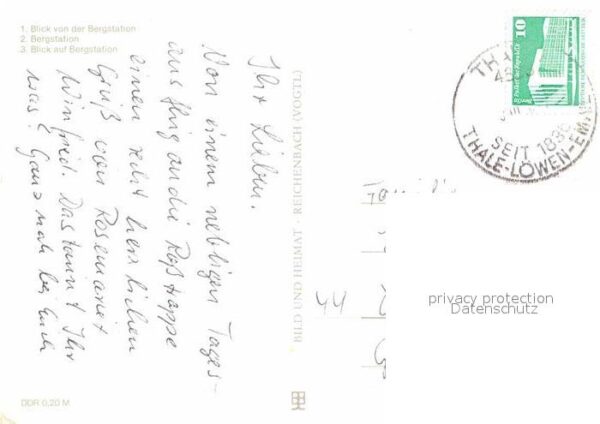 1. Blick von der Bergstation
2. Bergstation
3. Blick auf Bergstation
Ihr Lieben.
Von einem nebligen Tages-
ausflug an die Roßtappe
einen recht herzlichen
Gruß von Rosemarie +
Winfried. Das kennt Ihr
was? Ganz nah bei Euch
BILD UND HEIMAT · REICHENBACH (VOGTL)
DDR 0,20 M
10
SEIT 1836
THALE-LÖWEN-EM
44
privacy protection
Datenschutz